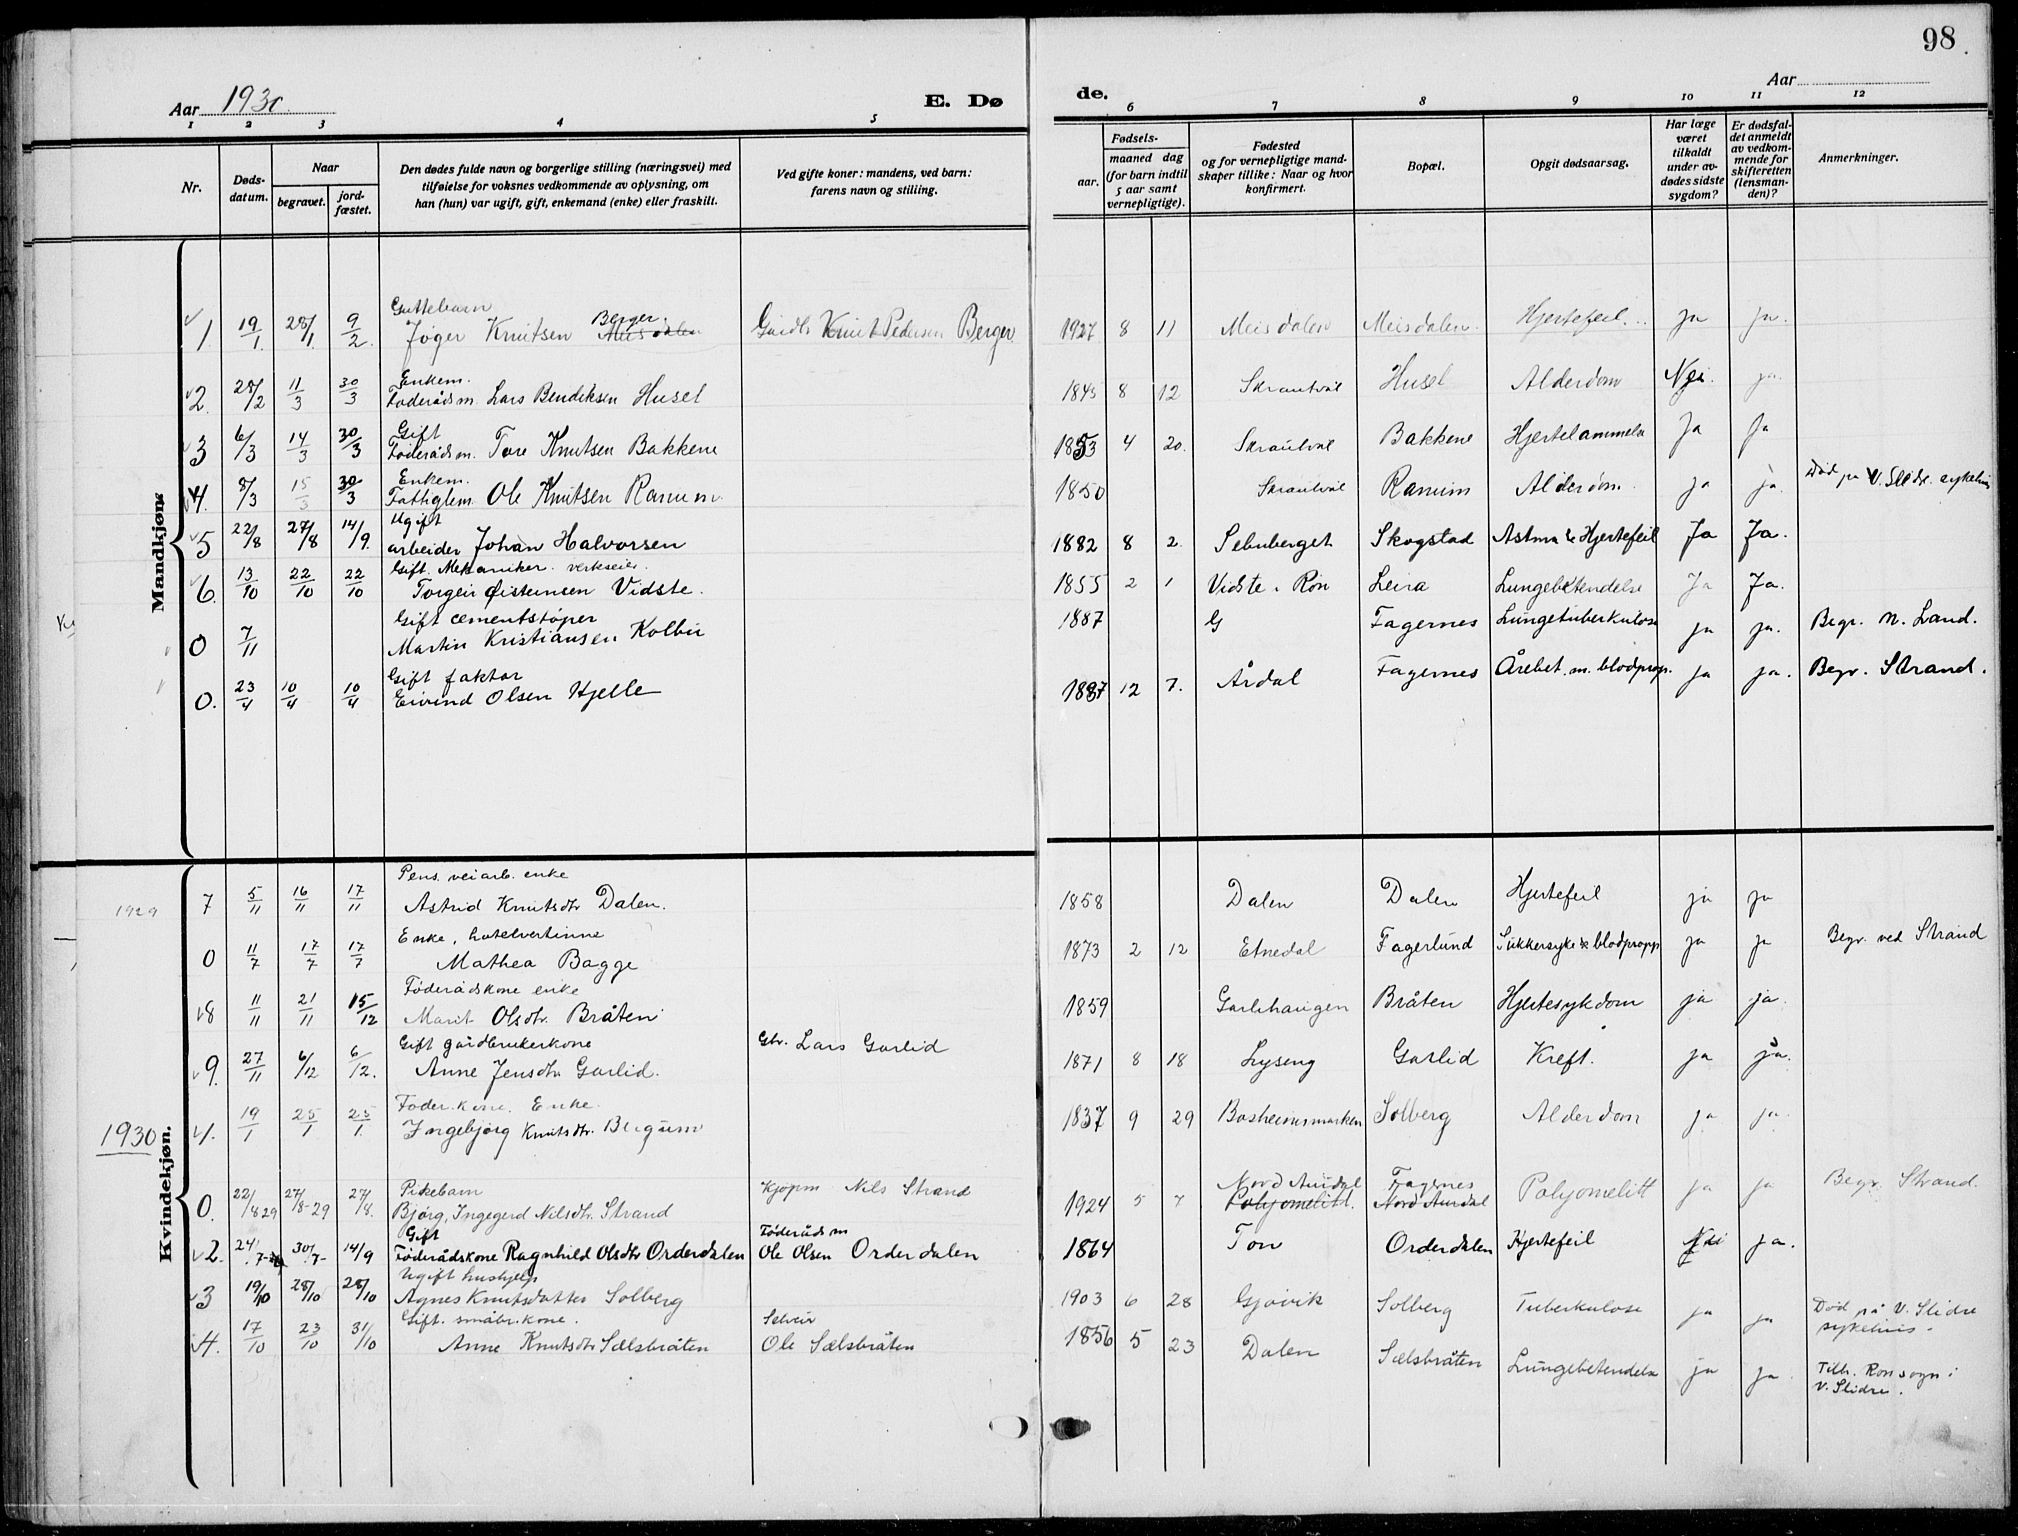 98
Aar 1930
E. Dø
de.
Aar
1 2 3 4 5 6 7 8 9 10 11 12
Nr.
Døds-
datum.
Naar
begravet.
jord-
fæstet.
Den dødes fulde navn og borgerlige stilling (næringsvei) med
tilføielse for voksnes vedkommende av oplysning, om
han (hun) var ugift, gift, enkemand (enke) eller fraskilt.
Ved gifte koner: mandens, ved barn:
farens navn og stilling.
Fødsels-
aar.
maaned dag
(for barn indtil
5 aar samt
vernepligtige).
Fødested
og for vernepligtige mand-
skaper tillike: Naar og hvor
konfirmert.
Bopæl.
Opgit dødsaarsag.
Har læge
været
tilkaldt
under av-
dødes sidste
sygdom?
Er dødsfal-
det anmeldt
av vedkom-
mende for
skifteretten
(lensman-
den)?
Anmerkninger.
Mandkjøn:
Guttebarn
1. 19/1 28/1 9/2 Jøger Knutsen Berger Gaardbr. Knut Pedersen Berger 1927 8 11 Meisdalen Meisdalen Hjertefeil ja ja.
Enkem.
2. 28/2 11/3 30/3 Føderådsm. Lars Bendiksen Husel 1845 8 12 Skrautvål Husel Alderdom Nei. ja.
Gift
3 6/3 14/3 30/3 Føderådsm. Tore Knutsen Bakkene 1853 4 20. Skrautvål Bakkene Hjertelammelse Ja Ja
Enkem.
4. 8/3 15/3 30/3 Fattiglem Ole Knutsen Ranum 1850 Skrautvål Ranum Alderdom. ja ja. Død på V. Slidre sykehus
Ugift
5 22/8 27/8 14/9. arbeider Johan Halvorsen 1882 8 2 Selnberget Skogstad Astma & Hjertefeil Ja Ja.
Gift. Mekaniker verkseier.
6. 13/10 22/10 22/10 Torgeir Øisteinsen Vidste. 1855 2 1 Vidste i Røn Leira Lungebetendelse Ja Ja.
Gift cementstøper
0 7/11 Martin Kristiansen Kolbu 1887 G Fagernes Lungetuberkulose ja ja. Begr. N. Land.
Gift faktor
0. 23/4 10/4 10/4 Eivind Olsen Hjelle 1887 12 7. Årdal Fagernes Årebet. m. blodpropp. ja ja. Begr. Strand.
Kvindekjøn.
1929
Pens. veiarb. enke
7 5/11 16/11 17/11 Astrid Knutsdtr Dalen. 1858 Dalen Dalen Hjertefeil ja ja
Enke, hotelvertinne
0 11/7 17/7 17/7 Mathea Bagge 1873 2 12 Etnedal Fagerlund Sukkersyke & blodpropp ja ja Begr. ved Strand
Føderådskone enke
8 11/11 21/11 15/12 Marit Olsdtr. Bråten 1859 Garlihaugen Bråten Hjertesykdom ja ja.
Gift gårdbrukerkone
9. 27/11 6/12 6/12. Anne Jensdtr Garlid. Gbr. Lars Garlid 1871 8 18 Lyseng Garlid Kreft. ja ja.
1930
Føder. kone. Enke.
1. 19/1 25/1 25/1. Ingebjørg Knutsdtr. Bergum 1837 9 29 Bosheimsmarken Solberg Alderdom ja ja.
Pikebarn
0. 22/8 29 27/8-29 27/8. Bjørg, Ingegerd Nilsdtr. Strand Kjøpm Nils Strand 1924 5 7 Nord Aurdal Polyomelitt. Fagernes Nord Aurdal Polyomelitt ja ja Begr. Strand.
Gift
2. 24/7 30/7- 14/9 Føderådskone Ragnhild Olsdtr Orderdalen Føderådsm Ole Olsen Orderdalen 1864 Ton Orderdalen Hjertefeil Nei ja.
Ugift hushjelp
3 19/10 28/10 28/10 Agnes Knutsdatter Solberg 1903 6 28 Gjøvik Solberg Tuberkulose ja ja Død på V. Slidre
sykehus.
Gift. småbr.kone.
4. 17/10 23/10 31/10 Anne Knutsdtr Sælsbråten Selveier Ole Sælsbråten 1856 5 23 Dalen Sælsbråten Lungebetendelse ja ja Tilh. Ron sogn i
V. Slidre.